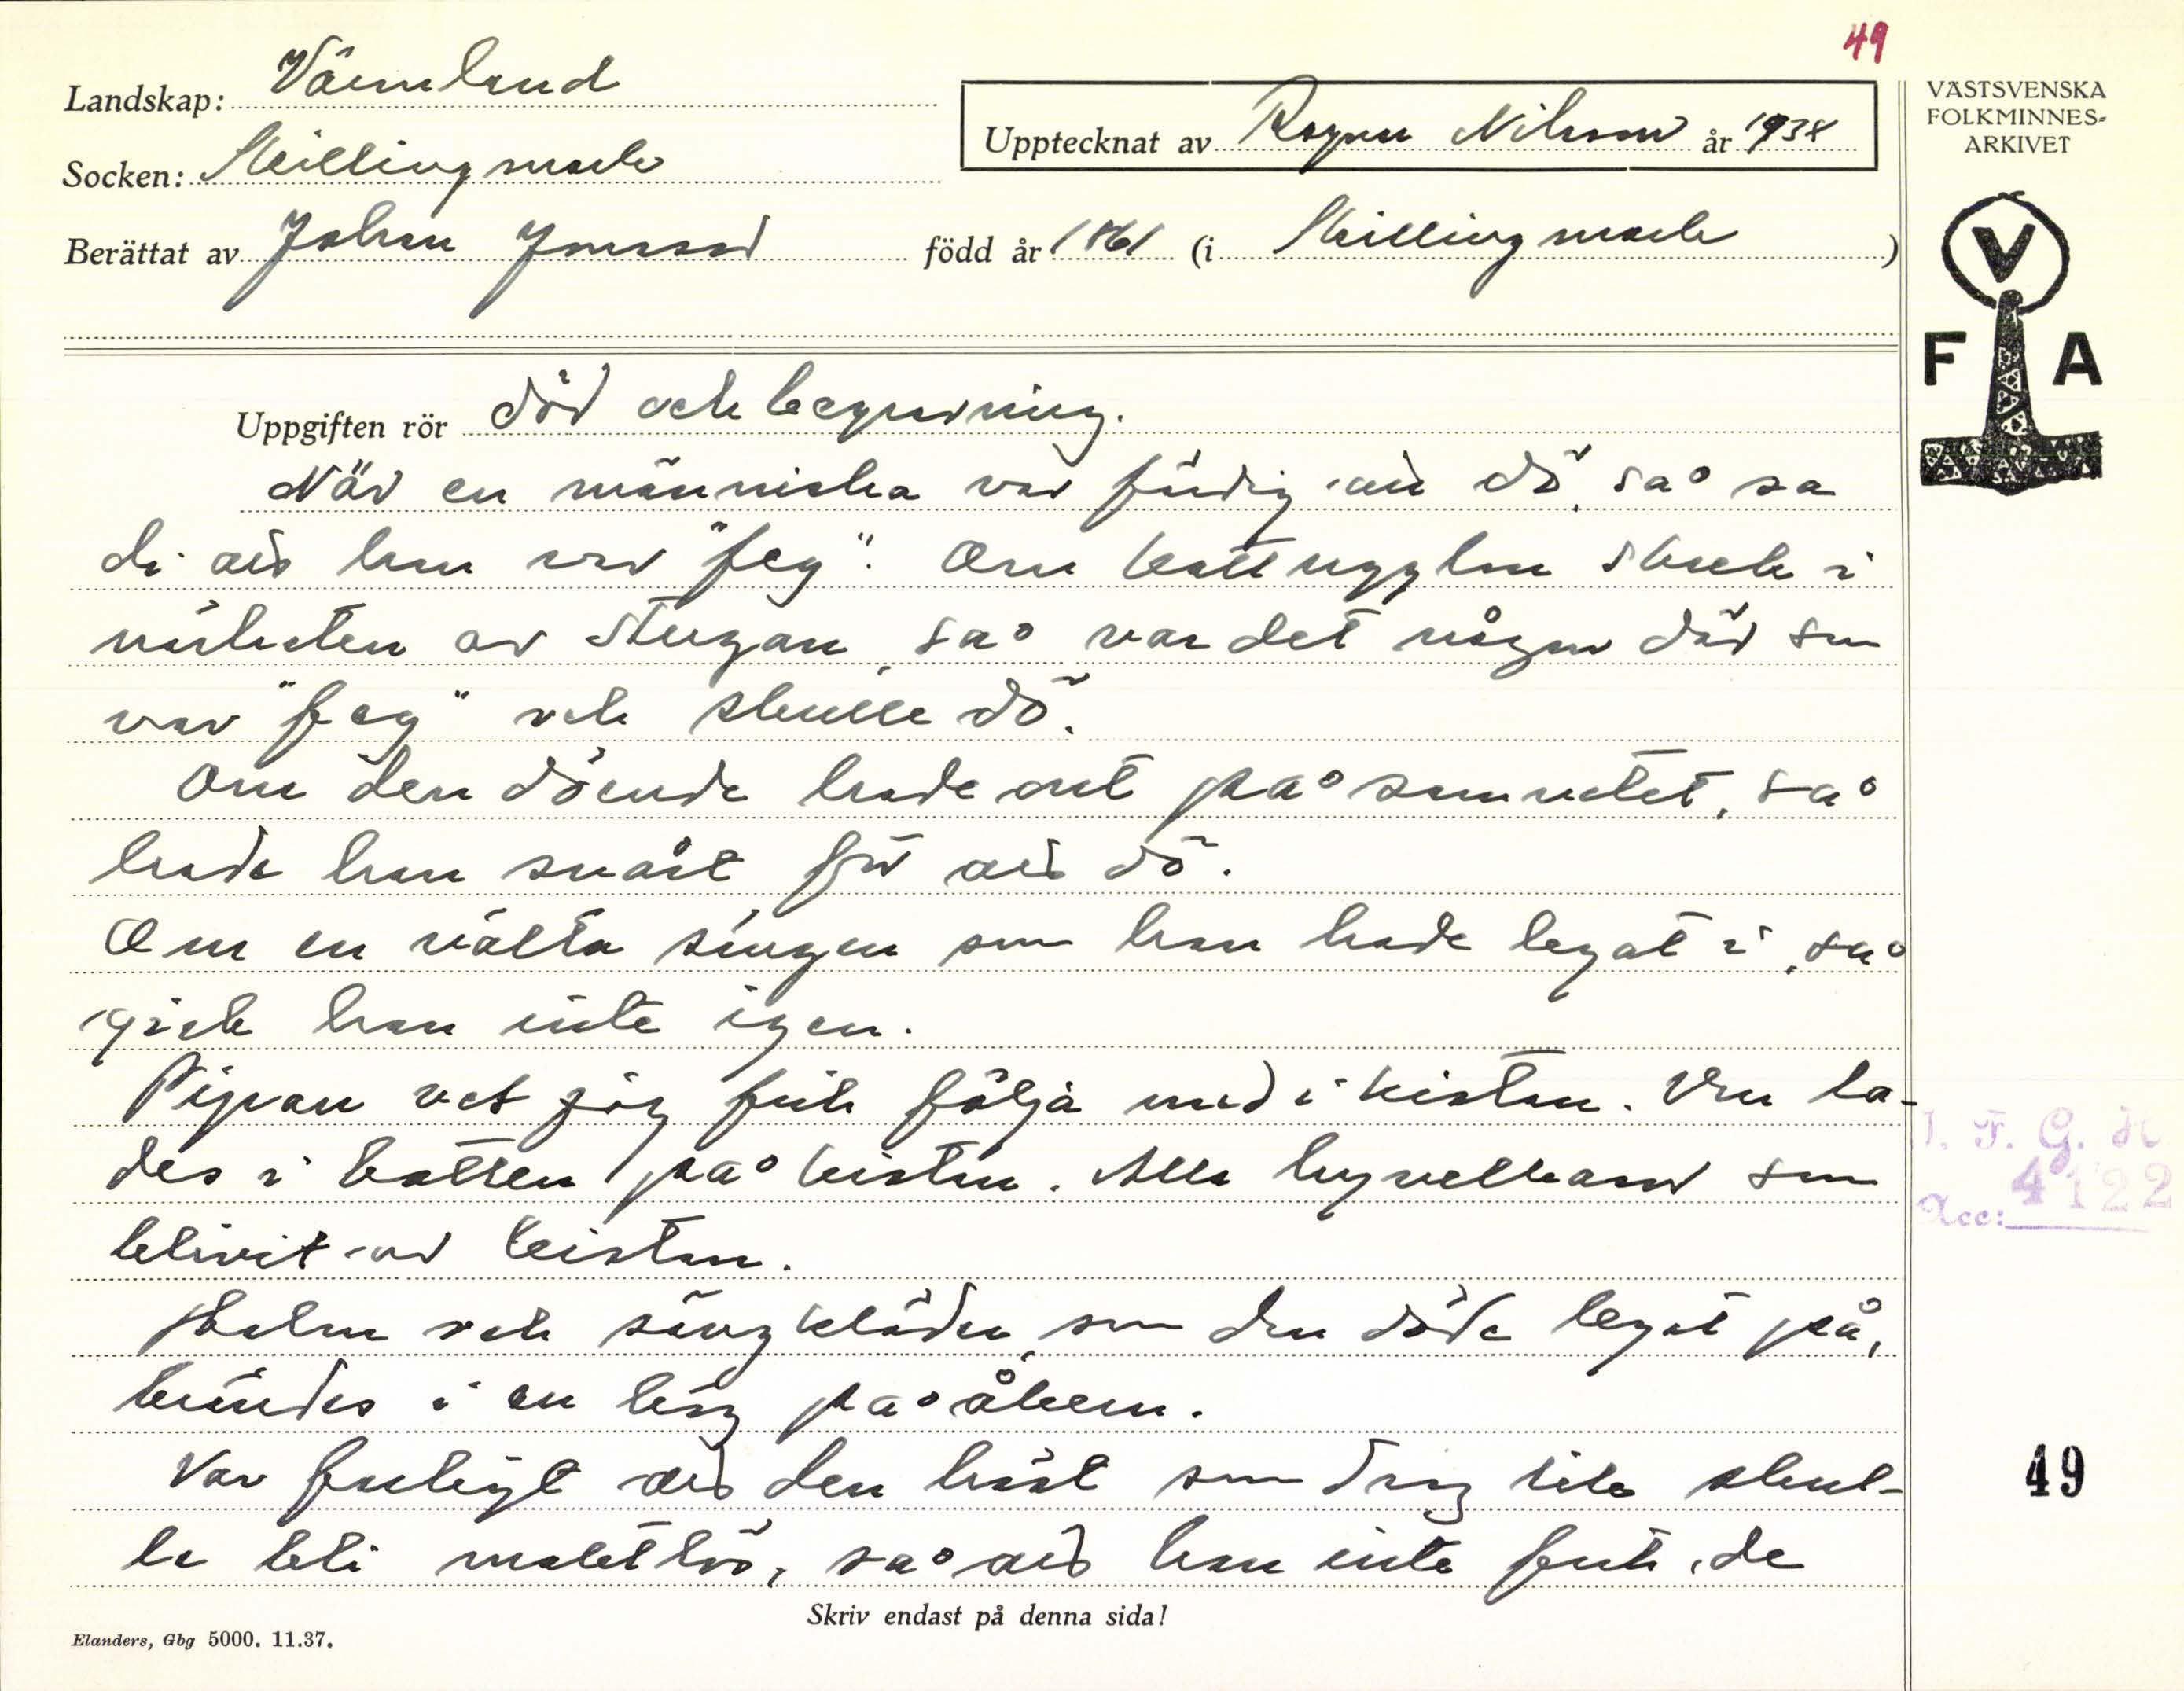 49
Landskap: Värmland
Upptecknat av Ragnar Nilsson år 1938
VÄSTSVENSKA
FOLKMINNES-
ARKIVET
Socken: Skillingmark
Berättat av Johan Jonsson född år 1861 (i Skillingmark)
V
F A
Uppgiften rör död och begravning.
När en människa var färdig att dö, så sa
de att han var "feg". Om kattugglan skrek i
närheten av stugan, så var det någon där som
var "feg" och skulle dö.
Om den döende hade ont på samvetet, så
hade han svårt för att dö.
Om en välta sängen som han hade legat i, så
gick han inte igen.
Pipan vet jag fick följa med i kistan. Den la-
des i botten på kistan. Alla hyvelspån som
blivit av kistan.
Halm och sängkläder, som den döde legat på,
brändes i en hög på åkern.
Var farligt att den häst som drog liket skul-
le bli maktlös, så att han inte fick de
I. F. G. H
Acc: 4122
49
Skriv endast på denna sida!
Elanders, Gbg 5000. 11.37.